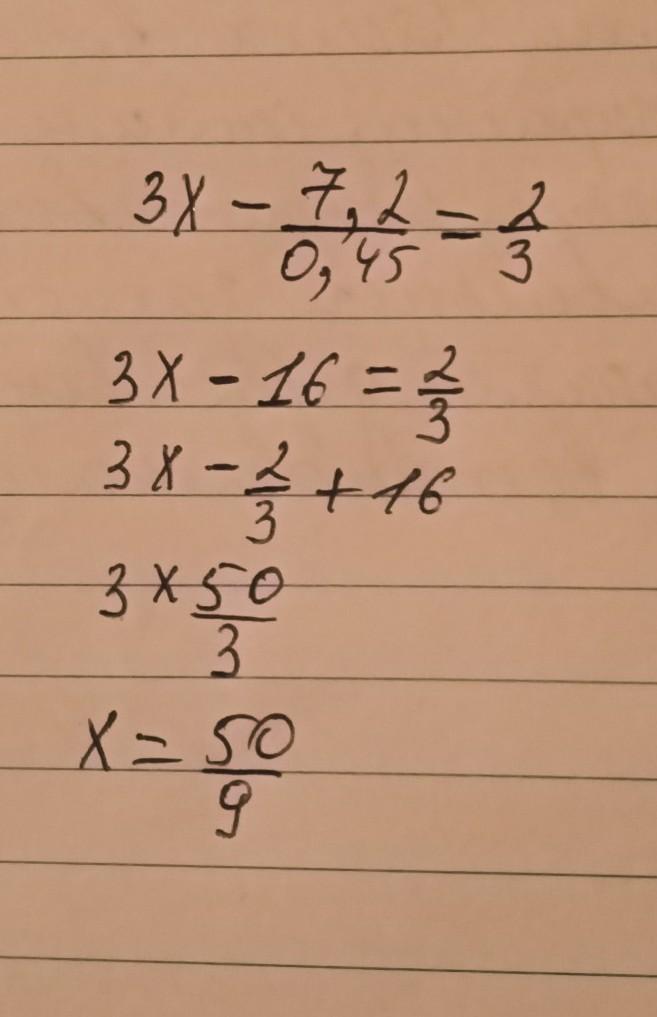 3x - 7,2/0,45 = 2/3
3x - 16 = 2/3
3x - 2/3 + 16
3x 50/3
x = 50/9